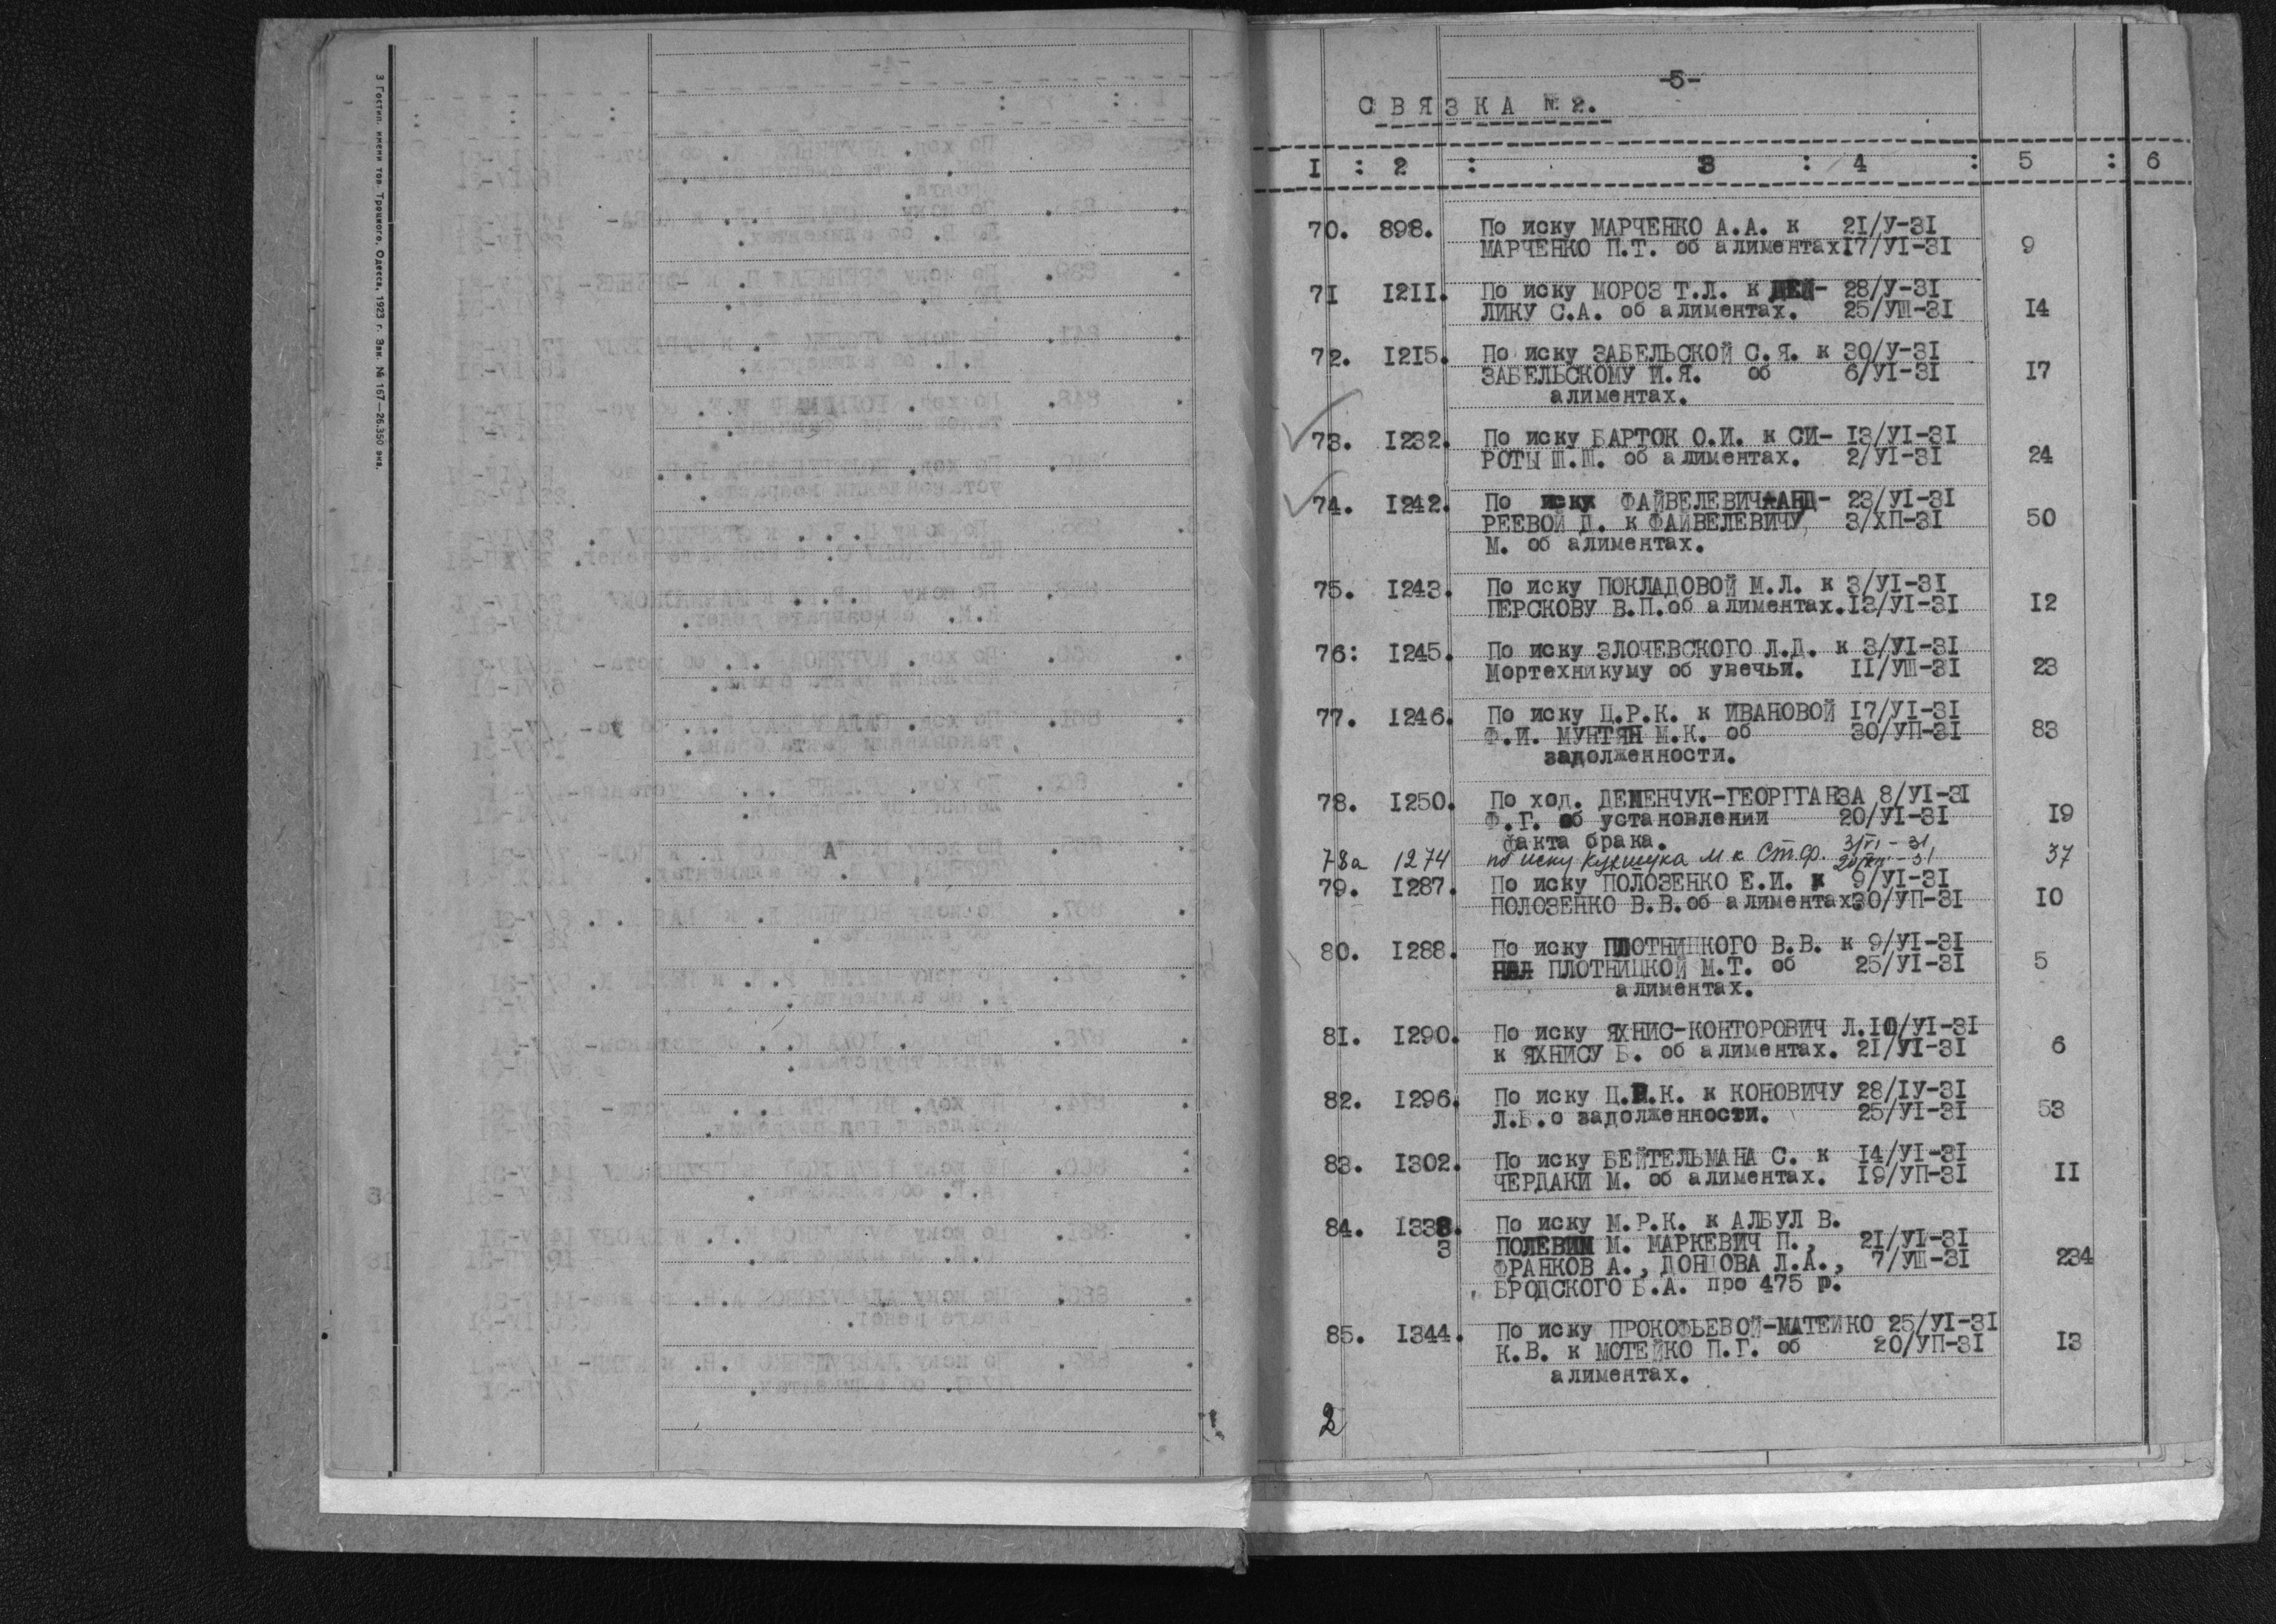 3 Гостип. имени тов. Троцкого. Одесса, 1923 г. Зак. № 167—26.350 экз.
-5-
СВЯЗКА № 2.
I : 2 : 3 : 4 : 5 : 6
70. 898. По иску МАРЧЕНКО А.А. к 21/У-31
МАРЧЕНКО П.Т. об алиментах 17/УI-31 9
71 1211. По иску МОРОЗ Т.Л. к ДЕЙ- 28/У-31
ЛИКУ С.А. об алиментах. 25/УШ-31 14
72. 1215. По иску ЗАБЕЛЬСКОЙ С.Я. к 30/У-31
ЗАБЕЛЬСКОМУ И.Я. об 6/УI-31 17
алиментах.
73. 1232. По иску БАРТОК О.И. к СИ- 13/УI-31
РОТЫ Ш.Ш. об алиментах. 2/УI-31 24
74. 1242. По иску ФАЙВЕЛЕВИЧ-АНД- 23/УI-31
РЕЕВОЙ Д. к ФАЙВЕЛЕВИЧУ 3/ХП-31 50
М. об алиментах.
75. 1243. По иску ПОКЛАДОВОЙ М.Л. к 3/УI-31
ПЕРСКОВУ В.П.об алиментах. 13/УI-31 12
76: 1245. По иску ЗЛОЧЕВСКОГО Л.Д. к 3/УI-31
Мортехникуму об увечьи. II/УШ-31 23
77. 1246. По иску Ц.Р.К. к ИВАНОВОЙ 17/УI-31
Ф.И. МУНТЯН М.К. об 30/УП-31 83
задолженности.
78. 1250. По ход. ДЕМЕНЧУК-ГЕОРГТАНЗА 8/УI-31
Ф.Г. об установлении 20/УI-31 19
факта брака.
78а 1274 по иску к Ст.ф. 3/VI-31 37
79. 1287. По иску ПОЛОЗЕНКО Е.И. к 9/УI-31
ПОЛОЗЕНКО В.В.об алиментах 30/УП-31 10
80. 1288. По иску ПЛОТНИЦКОГО В.В. к 9/УI-31
ПЛОТНИЦКОЙ М.Т. об 25/УI-31 5
алиментах.
81. 1290. По иску ЯХНИС-КОНТОРОВИЧ Л. 10/УI-31
к ЯХНИСУ Б. об алиментах. 21/УI-31 6
82. 1296. По иску Ц.Р.К. к КОНОВИЧУ 28/IУ-31
Л.Б.о задолженности. 25/УI-31 53
83. 1302. По иску БЕЙТЕЛЬМАНА С. к 14/УI-31
ЧЕРДАКИ М. об алиментах. 19/УП-31 II
84. 1338. По иску М.Р.К. к АЛБУЛ В.
3 ПОЛЕВИМ М. МАРКЕВИЧ П., 21/УI-31
ФРАНКОВ А., ДОНЦОВА Л.А., 7/УШ-31 234
БРОДСКОГО Б.А. про 475 р.
85. 1344. По иску ПРОКОФЬЕВОЙ-МАТЕЙКО 25/УI-31
К.В. к МОТЕЙКО П.Г. об 20/УП-31 13
алиментах.
2